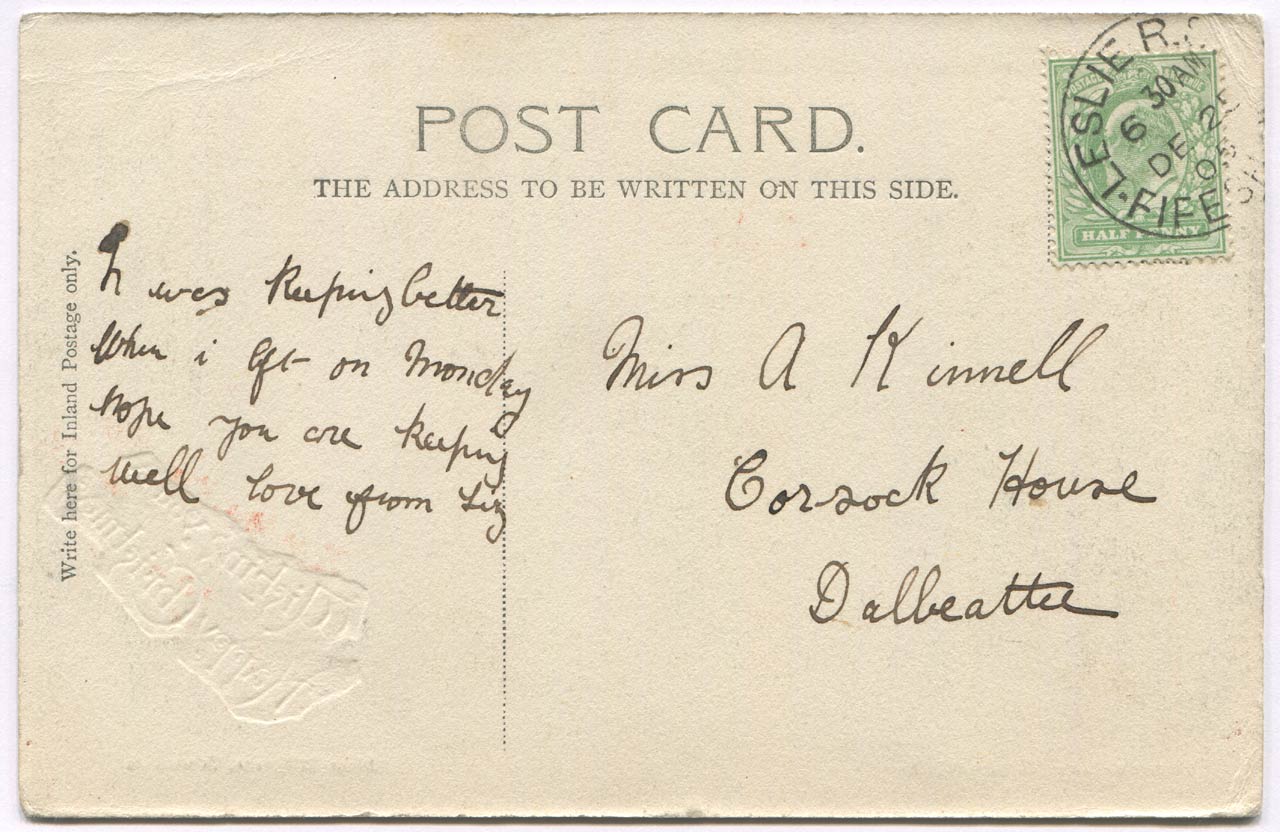 POST CARD.
THE ADDRESS TO BE WRITTEN ON THIS SIDE.
Write here for Inland Postage only.
was keeping better
When i left on Monday
hope you are keeping
well love from Liz
Miss A Kinnell
Corsock House
Dalbeattie
LESLIE R.S
6 30 AM
DE 2
05
FIFE
HALF PENNY